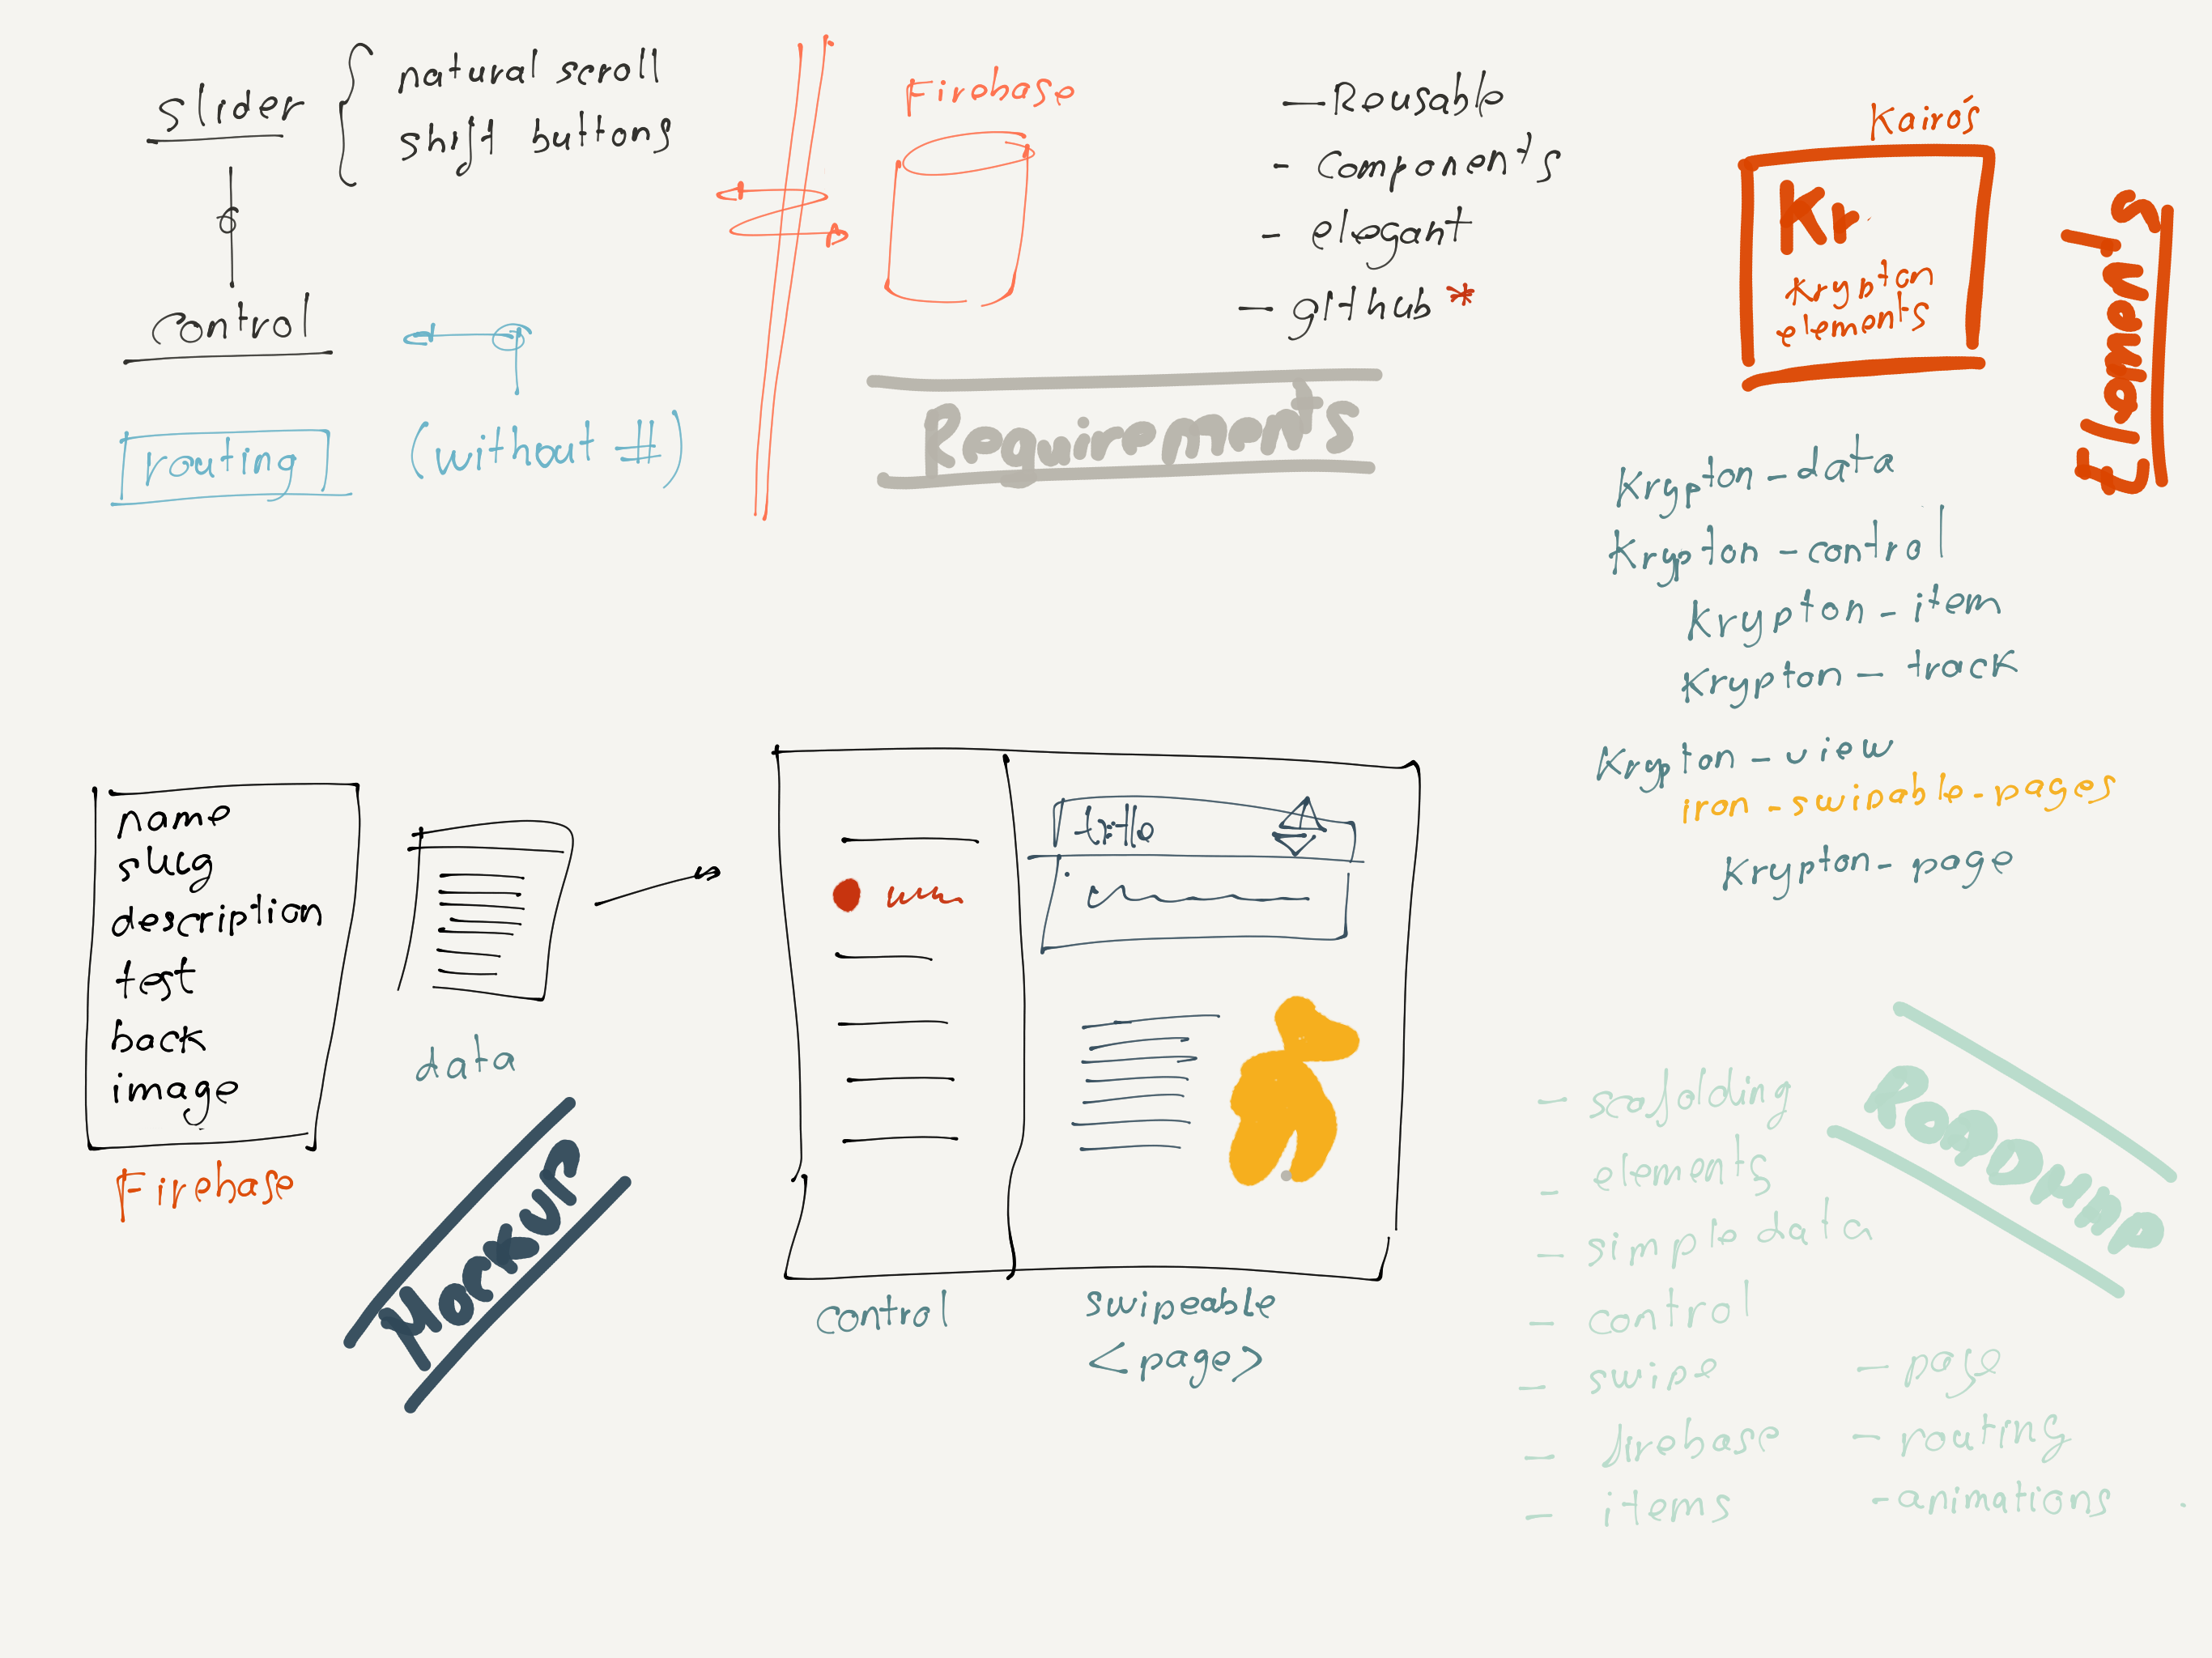 slider
natural scroll
shift buttons
control
routing
(without #)
Firebase
- Reusable
- components
- elegant
- github *
Requirements
Kairós
Kr
Krypton
elements
Krypton - data
Krypton - control
Krypton - item
Krypton - track
Krypton - view
iron - swipable - pages
Krypton - page
name
slug
description
test
back
image
Firebase
data
Mockup
title
control
swipeable
<page>
ROADMAP
- scafolding
- elements
- simple data
- control
- swipe
- firebase
- items
- page
- routing
- animations